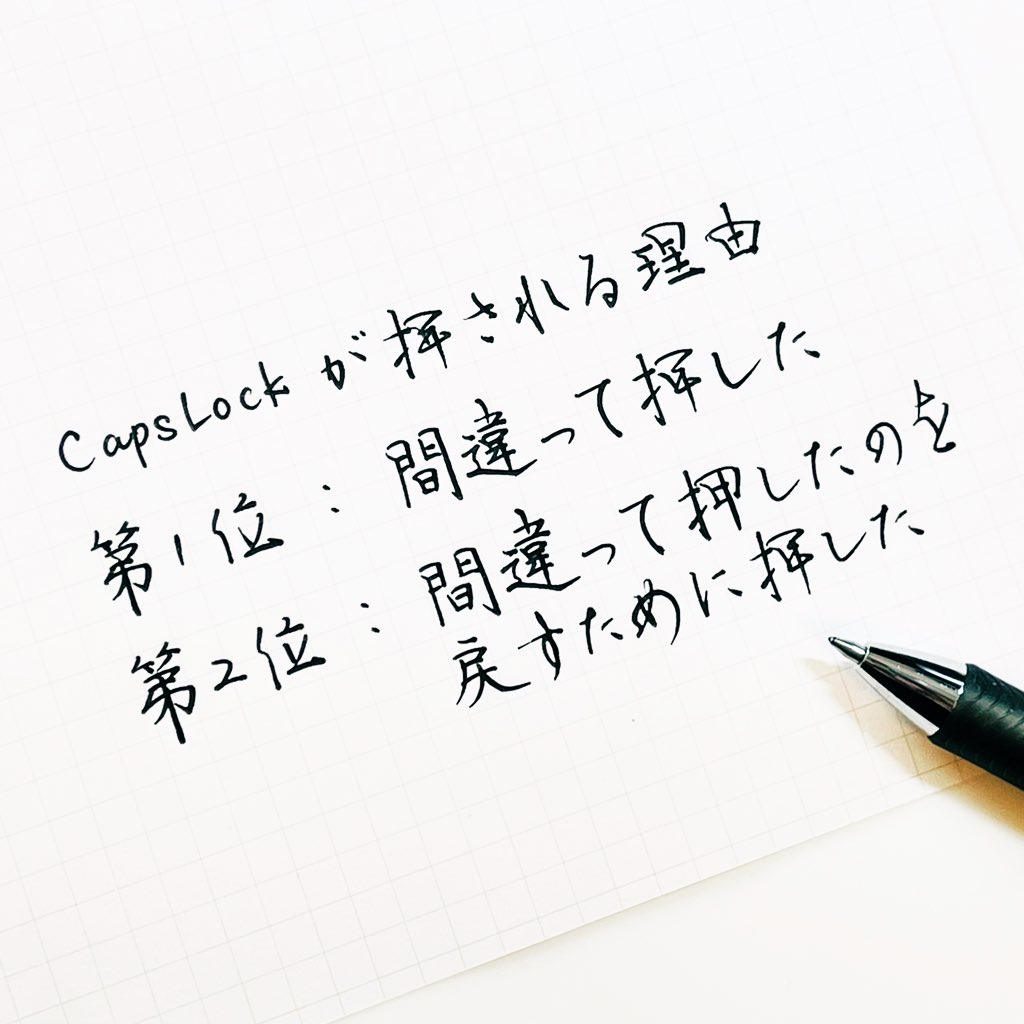 CapsLockが押される理由
第1位：間違って押した
第2位：間違って押したのを
戻すために押した